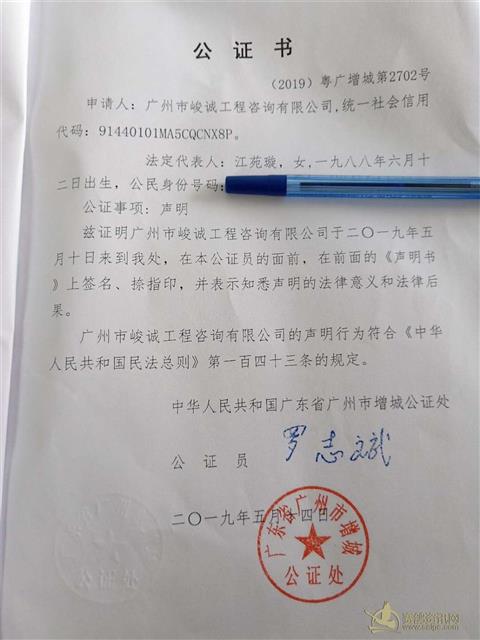 公证书
（2019）粤广增城第2702号
申请人：广州市峻诚工程咨询有限公司,统一社会信用
代码：91440101MA5CQCNX8P。
法定代表人：江苑璇，女,一九八八年六月十
二日出生，公民身份号码：
公证事项：声明
兹证明广州市峻诚工程咨询有限公司于二〇一九年五
月十日来到我处，在本公证员的面前，在前面的《声明书
》上签名、捺指印，并表示知悉声明的法律意义和法律后
果。
广州市峻诚工程咨询有限公司的声明行为符合《中华
人民共和国民法总则》第一百四十三条的规定。
中华人民共和国广东省广州市增城公证处
公证员 罗志斌
二〇一九年五月十四日
广东省广州市增城
公证处
公证处
赛鸽资讯网